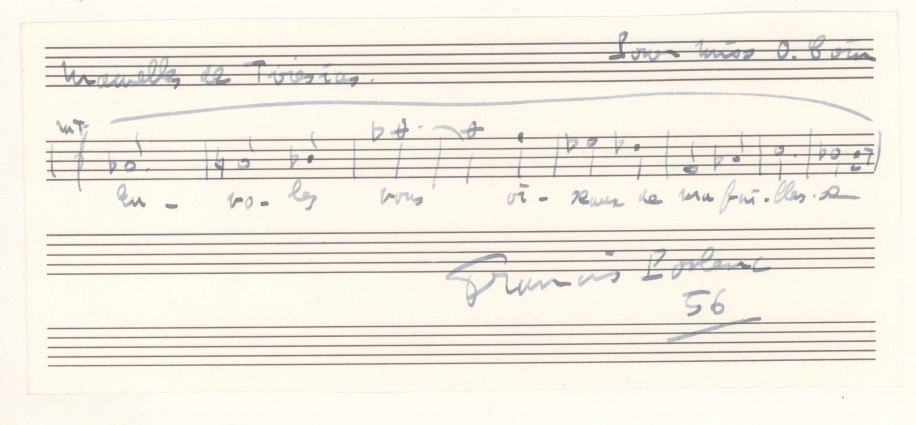 Pour miss O. Coin
Mamelles de Tirésias.
En - vo - lez vous oi - seaux de ma fai - bles - se
Francis Poulenc
56